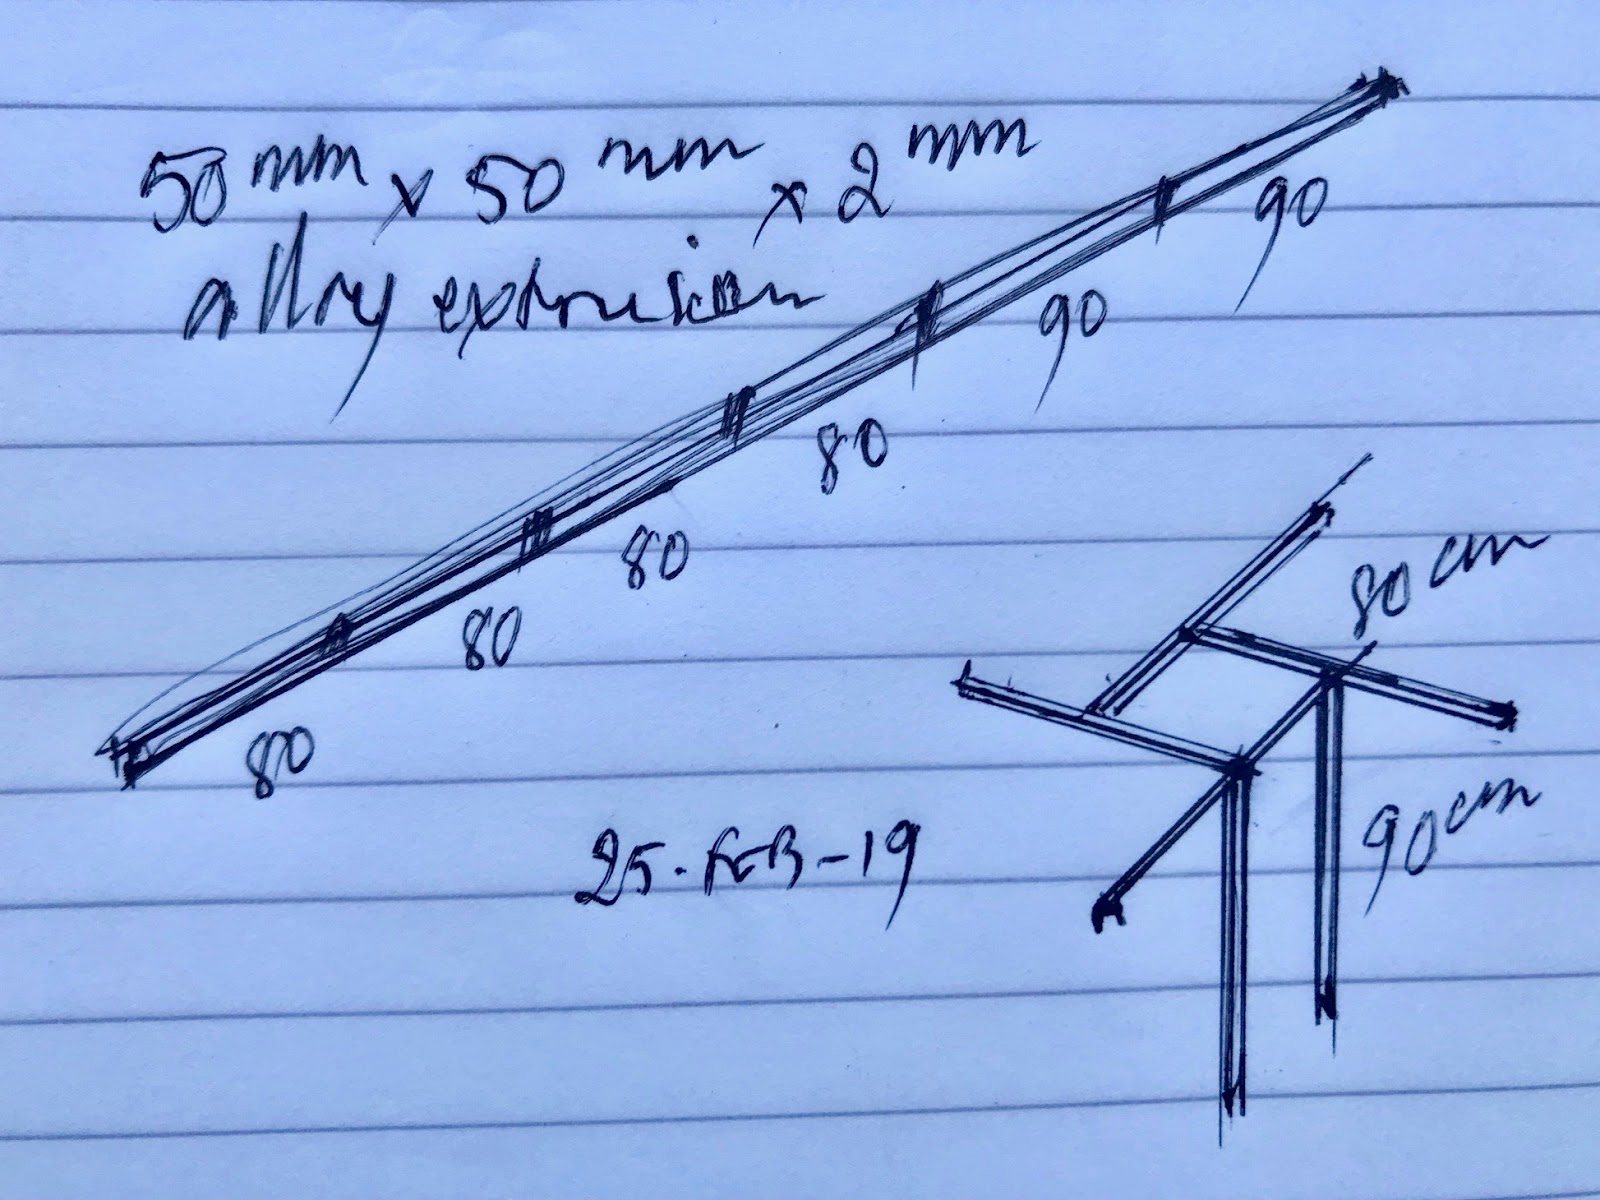 50mm x 50mm x 2mm
alloy extrusion
90
90
80
80
80
80
80cm
90cm
25-FEB-19